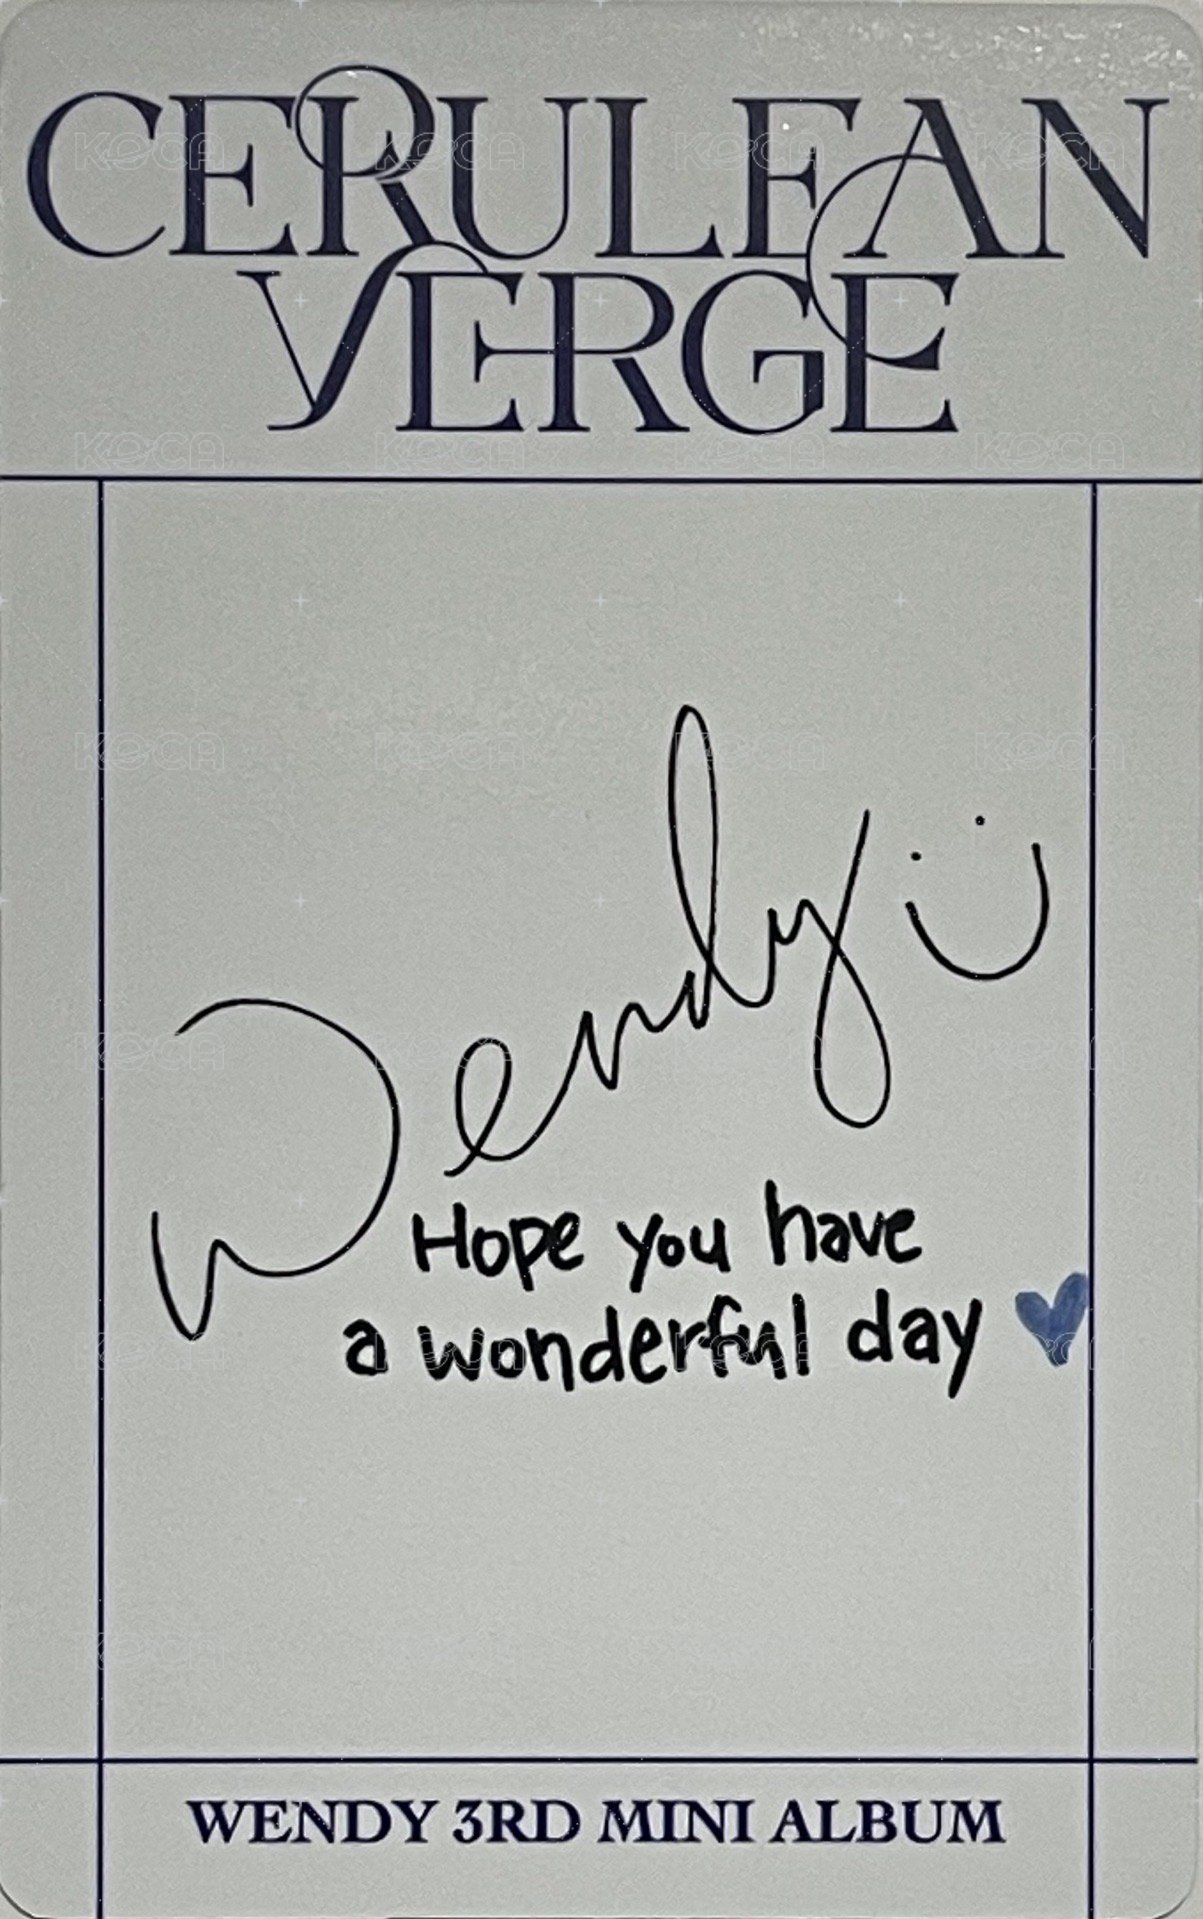 CERULEAN
VERGE
Wendy :)
Hope you have
a wonderful day ♥
WENDY 3RD MINI ALBUM
KOCA